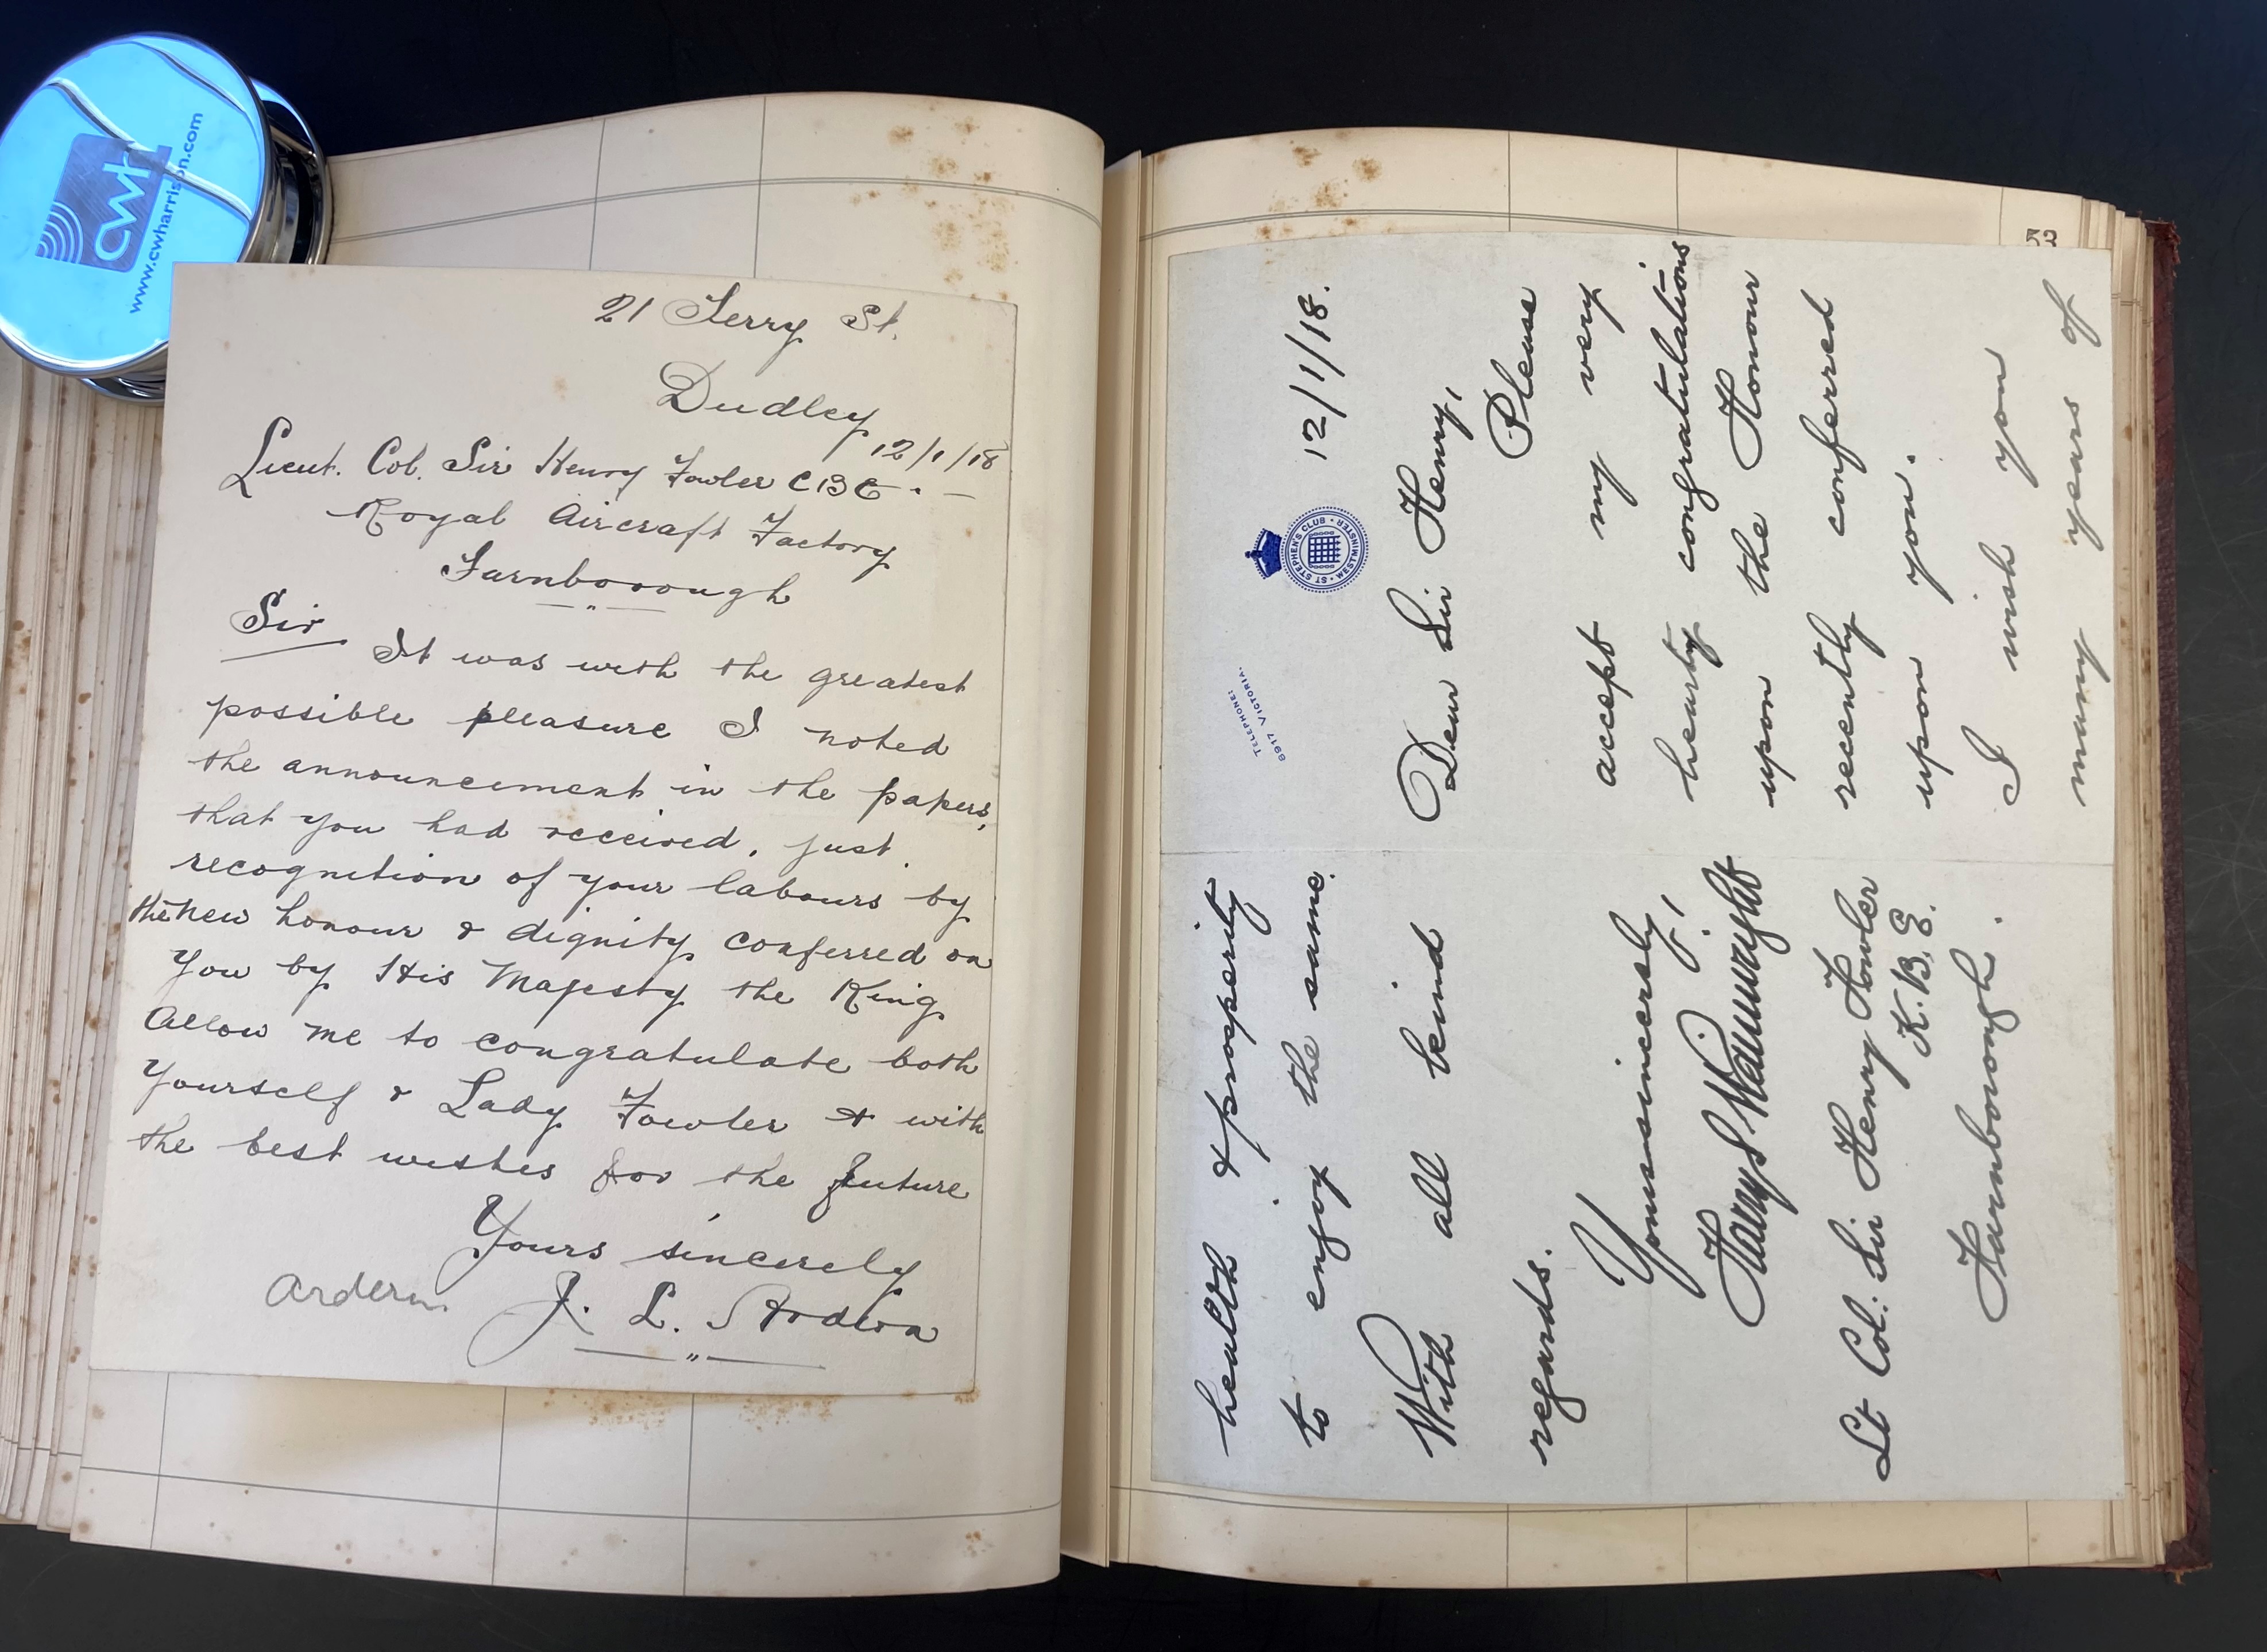 cwh
www.cwharrison.com
21 Ferry St.
Dudley
12/1/18
Lieut. Col. Sir Henry Fowler C B E. —
Royal Aircraft Factory
Farnborough
Sir
It was with the greatest
possible pleasure I noted
the announcement in the papers,
that you had received, just
recognition of your labours by
the new honour & dignity conferred on
you by His Majesty the King
Allow me to congratulate both
yourself & Lady Fowler & with
the best wishes for the future
Yours sincerely
J. L. Ardern
Ardern.
53
TELEPHONE:
8917 VICTORIA.
ST STEPHEN'S CLUB · WESTMINSTER ·
12/1/18.
Dear Sir Henry,
Please
accept my very
hearty congratulations
upon the Honour
recently conferred
upon you.
I wish you
many years of
health & prosperity
to enjoy the same.
With all kind
regards.
Yours sincerely,
Harry S Wainwright
Lt Col: Sir Henry Fowler
K.B.E.
Farnborough.